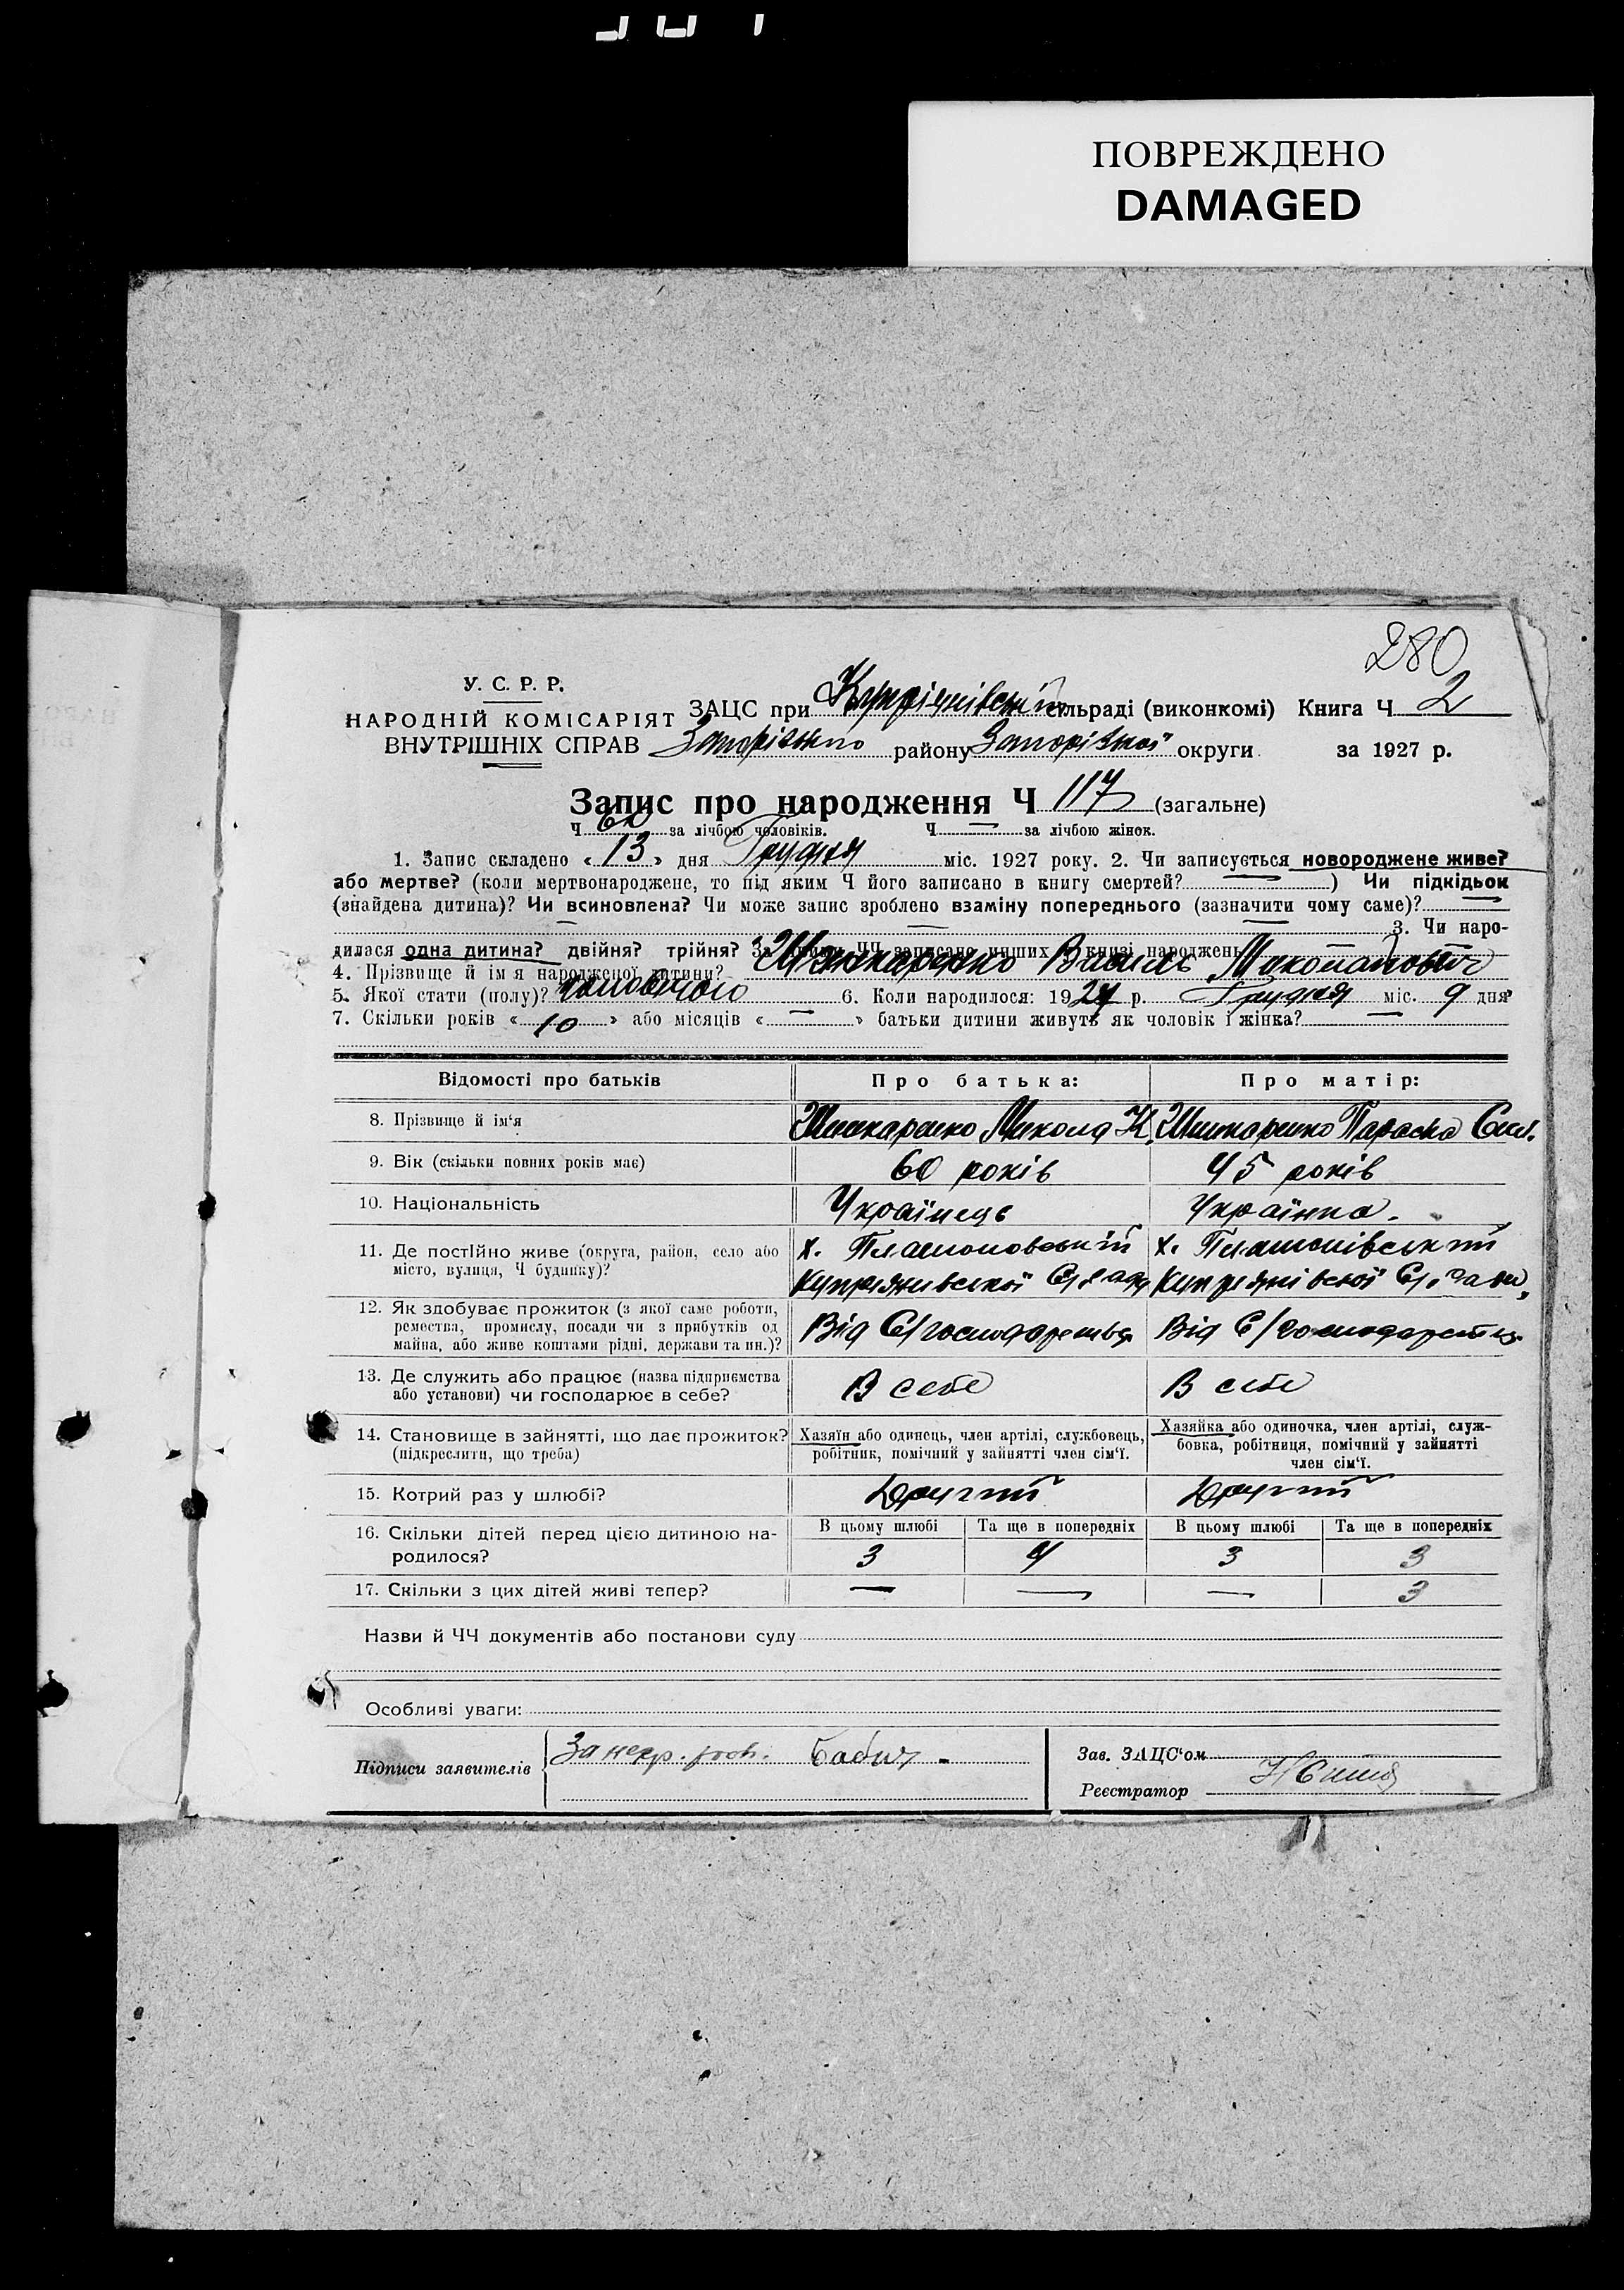 ПОВРЕЖДЕНО
DAMAGED
280
У. С. Р. Р.
НАРОДНІЙ КОМІСАРІЯТ
ВНУТРІШНІХ СПРАВ
ЗАЦС при Купріянівській сільраді (виконкомі) Книга Ч 2
Запорізького району Запорізької округи за 1927 р.
Запис про народження Ч 117 (загальне)
Ч 60 за лічбою чоловіків. Ч — за лічбою жінок.
1. Запис складено « 13 » дня Грудня міс. 1927 року. 2. Чи записується новороджене живе?
або мертве? (коли мертвонароджене, то під яким Ч його записано в книгу смертей? — ) Чи підкідьок
(знайдена дитина)? Чи всиновлена? Чи може запис зроблено взаміну попереднього (зазначити чому саме)? —
— 3. Чи наро-
дилася одна дитина? двійня? трійня? За якими ЧЧ записано инших в книзі народжень —
4. Прізвище й ім'я народженої дитини? Шинкаренко Василь Миколайович
5. Якої стати (полу)? чоловічої 6. Коли народилося: 1927 р. Грудня міс. 9 дня
7. Скільки років « 10 » або місяців « — » батьки дитини живуть як чоловік і жінка? —
Відомості про батьків Про батька: Про матір:
8. Прізвище й ім'я Шинкаренко Микола К. Шинкаренко Параска
9. Вік (скільки повних років має) 60 років 45 років
10. Національність Українець Українка.
11. Де постійно живе (округа, район, село або
місто, вулиця, Ч будинку)?
х. Платоновський х. Платонівський
Купріянівської С/ради Купріянівської С/ради
12. Як здобуває прожиток (з якої саме роботи,
ремества, промислу, посади чи з прибутків од
майна, або живе коштами рідні, держави та ин.)?
Від С/господарства Від С/господарства
13. Де служить або працює (назва підприємства
або установи) чи господарює в себе?
В себе В себе
14. Становище в зайнятті, що дає прожиток?
(підкреслити, що треба)
Хазяїн або одинець, член артілі, службовець,
робітник, помічний у зайнятті член сім'ї.
Хазяйка або одиночка, член артілі, служ-
бовка, робітниця, помічний у зайнятті
член сім'ї.
15. Котрий раз у шлюбі? Другий Другий
16. Скільки дітей перед цією дитиною на-
родилося?
В цьому шлюбі Та ще в попередніх В цьому шлюбі Та ще в попередніх
3 4 3 3
17. Скільки з цих дітей живі тепер? — — — 3
Назви й ЧЧ документів або постанови суду
Особливі уваги:
Підписи заявителів За негр. Бабич
Зав. ЗАЦС'ом
Реєстратор